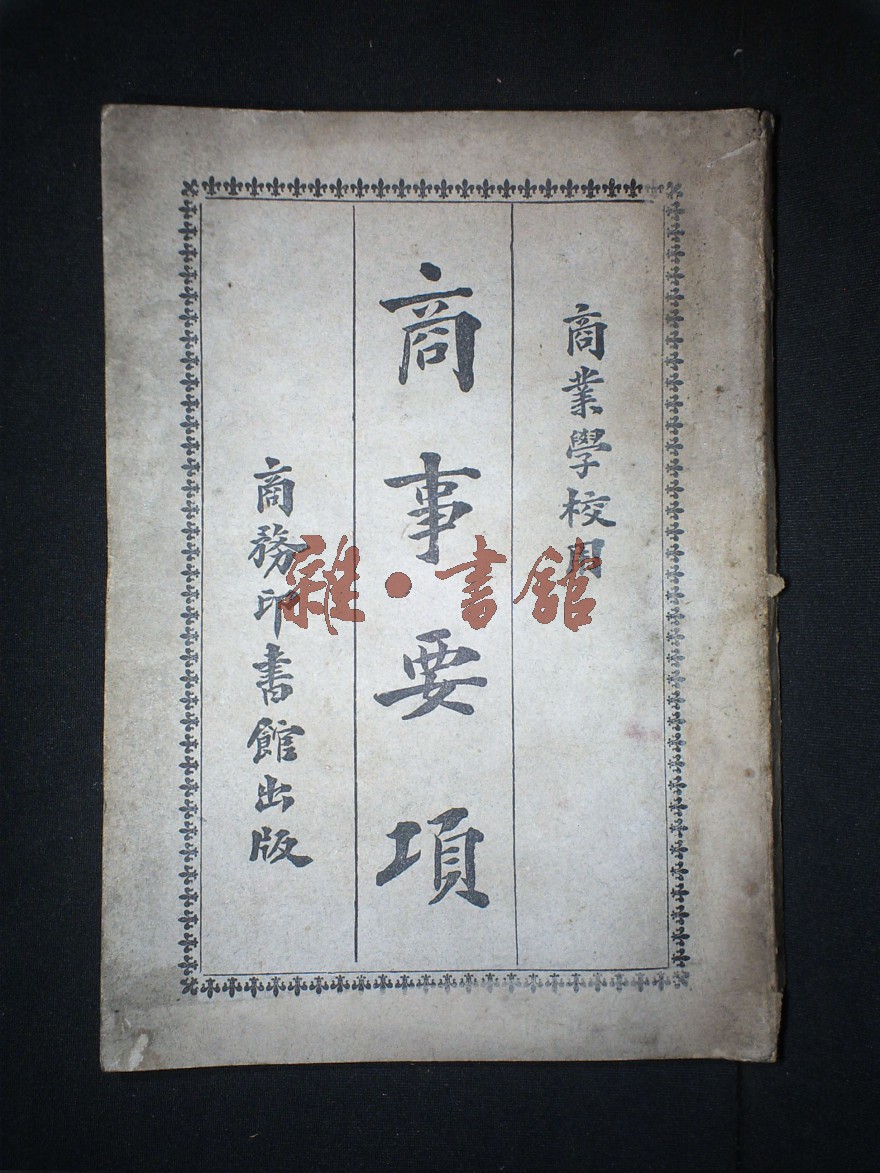 商業學校用
商事要項
商務印書館出版
雜·書館